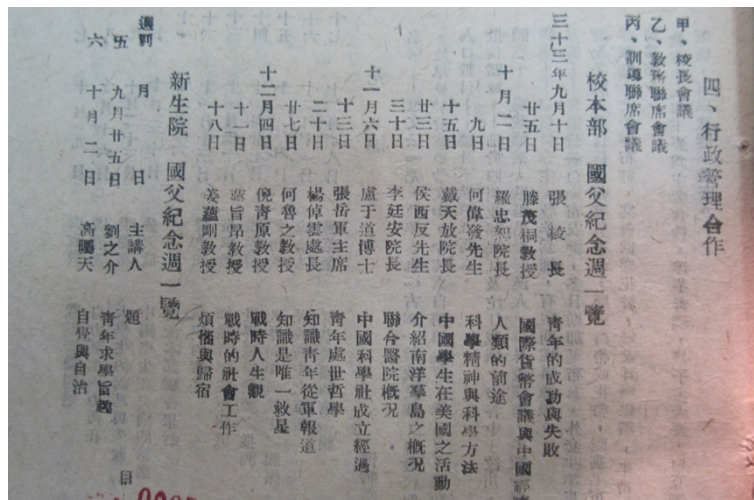 四、行政管理合作
甲、校長會議
乙、教務聯席會議
丙、訓導聯席會議
校本部 國父紀念週一覽
三十三年九月十日 張校長 青年的成功與失敗
廿五日 滕茂桐教授 國際貨幣會議與中國
十月二日 羅忠恕院長 人類的前途
九日 何偉發先生 科學精神與科學方法
十五日 戴天放院長 中國學生在美國之活動
廿三日 侯西反先生 介紹南洋羣島之概況
三十日 李廷安院長 聯合醫院概況
十一月六日 盧于道博士 中國科學社成立經過
十三日 張岳軍主席 青年處世哲學
二十日 楊倬雲處長 知識青年從軍報道
廿七日 何魯之教授 知識是唯一救星
十二月四日 倪青原教授 戰時人生觀
十一日 蔣旨昂教授 戰時的社會工作
十八日 姜蘊剛教授 煩惱與歸宿
新生院 國父紀念週一覽
週別 月 日 主講人 題 目
五 九月廿五日 劉之介 青年求學旨趣
六 十月二日 高矚天 自學與自治